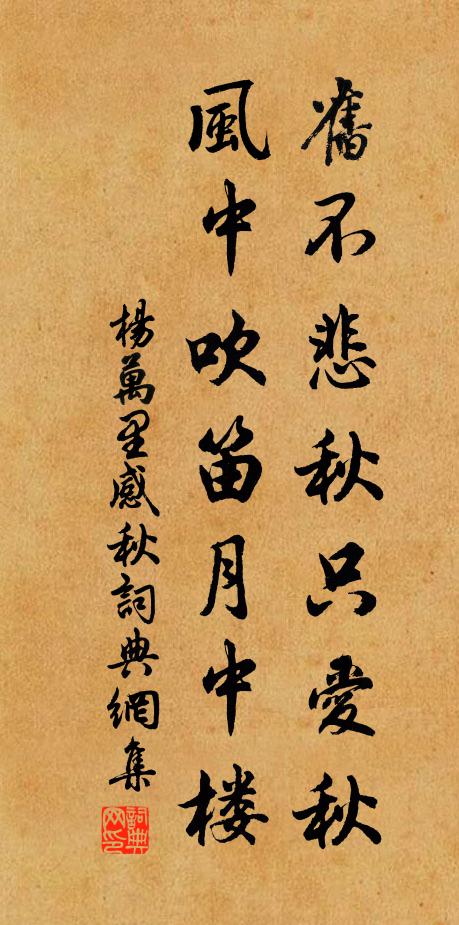 舊不悲秋只愛秋
風中吹笛月中楼
楊萬里感秋詞典網集
詞典
网印